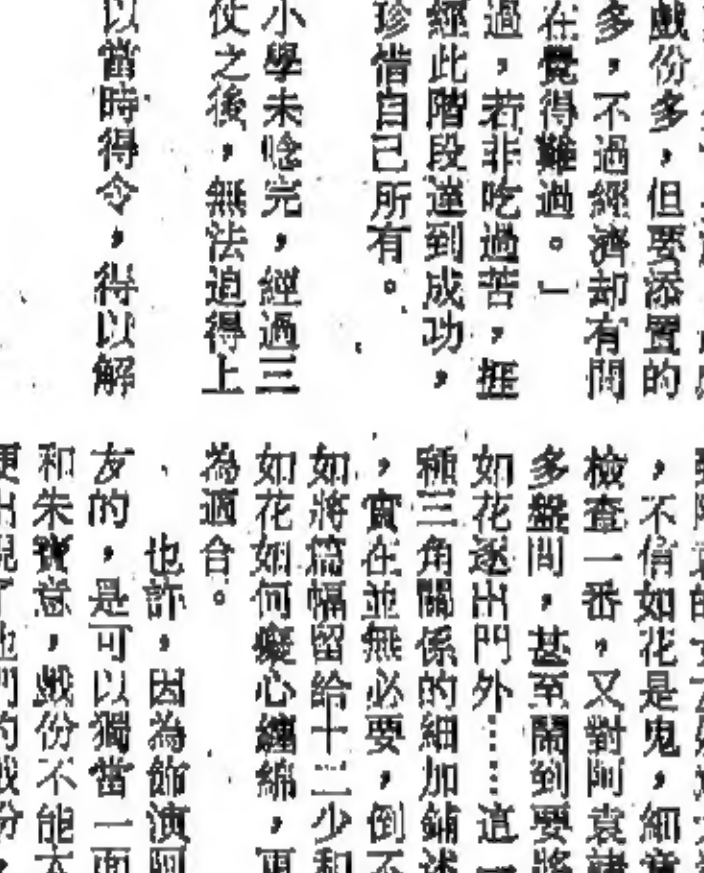 戲份多，但要添置的
多，不過經濟却有問
在覺得難過。」
過，若非吃過苦，捱
經此階段達到成功，
珍惜自己所有。
小學未唸完，經過三
仗之後，無法迫得上
以當時得令，得以解
，不信如花是鬼，細
檢查一番，又對阿袁諸
多盤問，甚至鬧到要將
如花逐出門外……這一
種三角關係的細加鋪述
，實在並無必要，倒不
如將篇幅留給十二少和
如花如何癡心纏綿，更
為適合。
也許，因為飾演阿
友的，是可以獨當一面
和朱寶意，戲份不能太
便出現了他們的戲份，